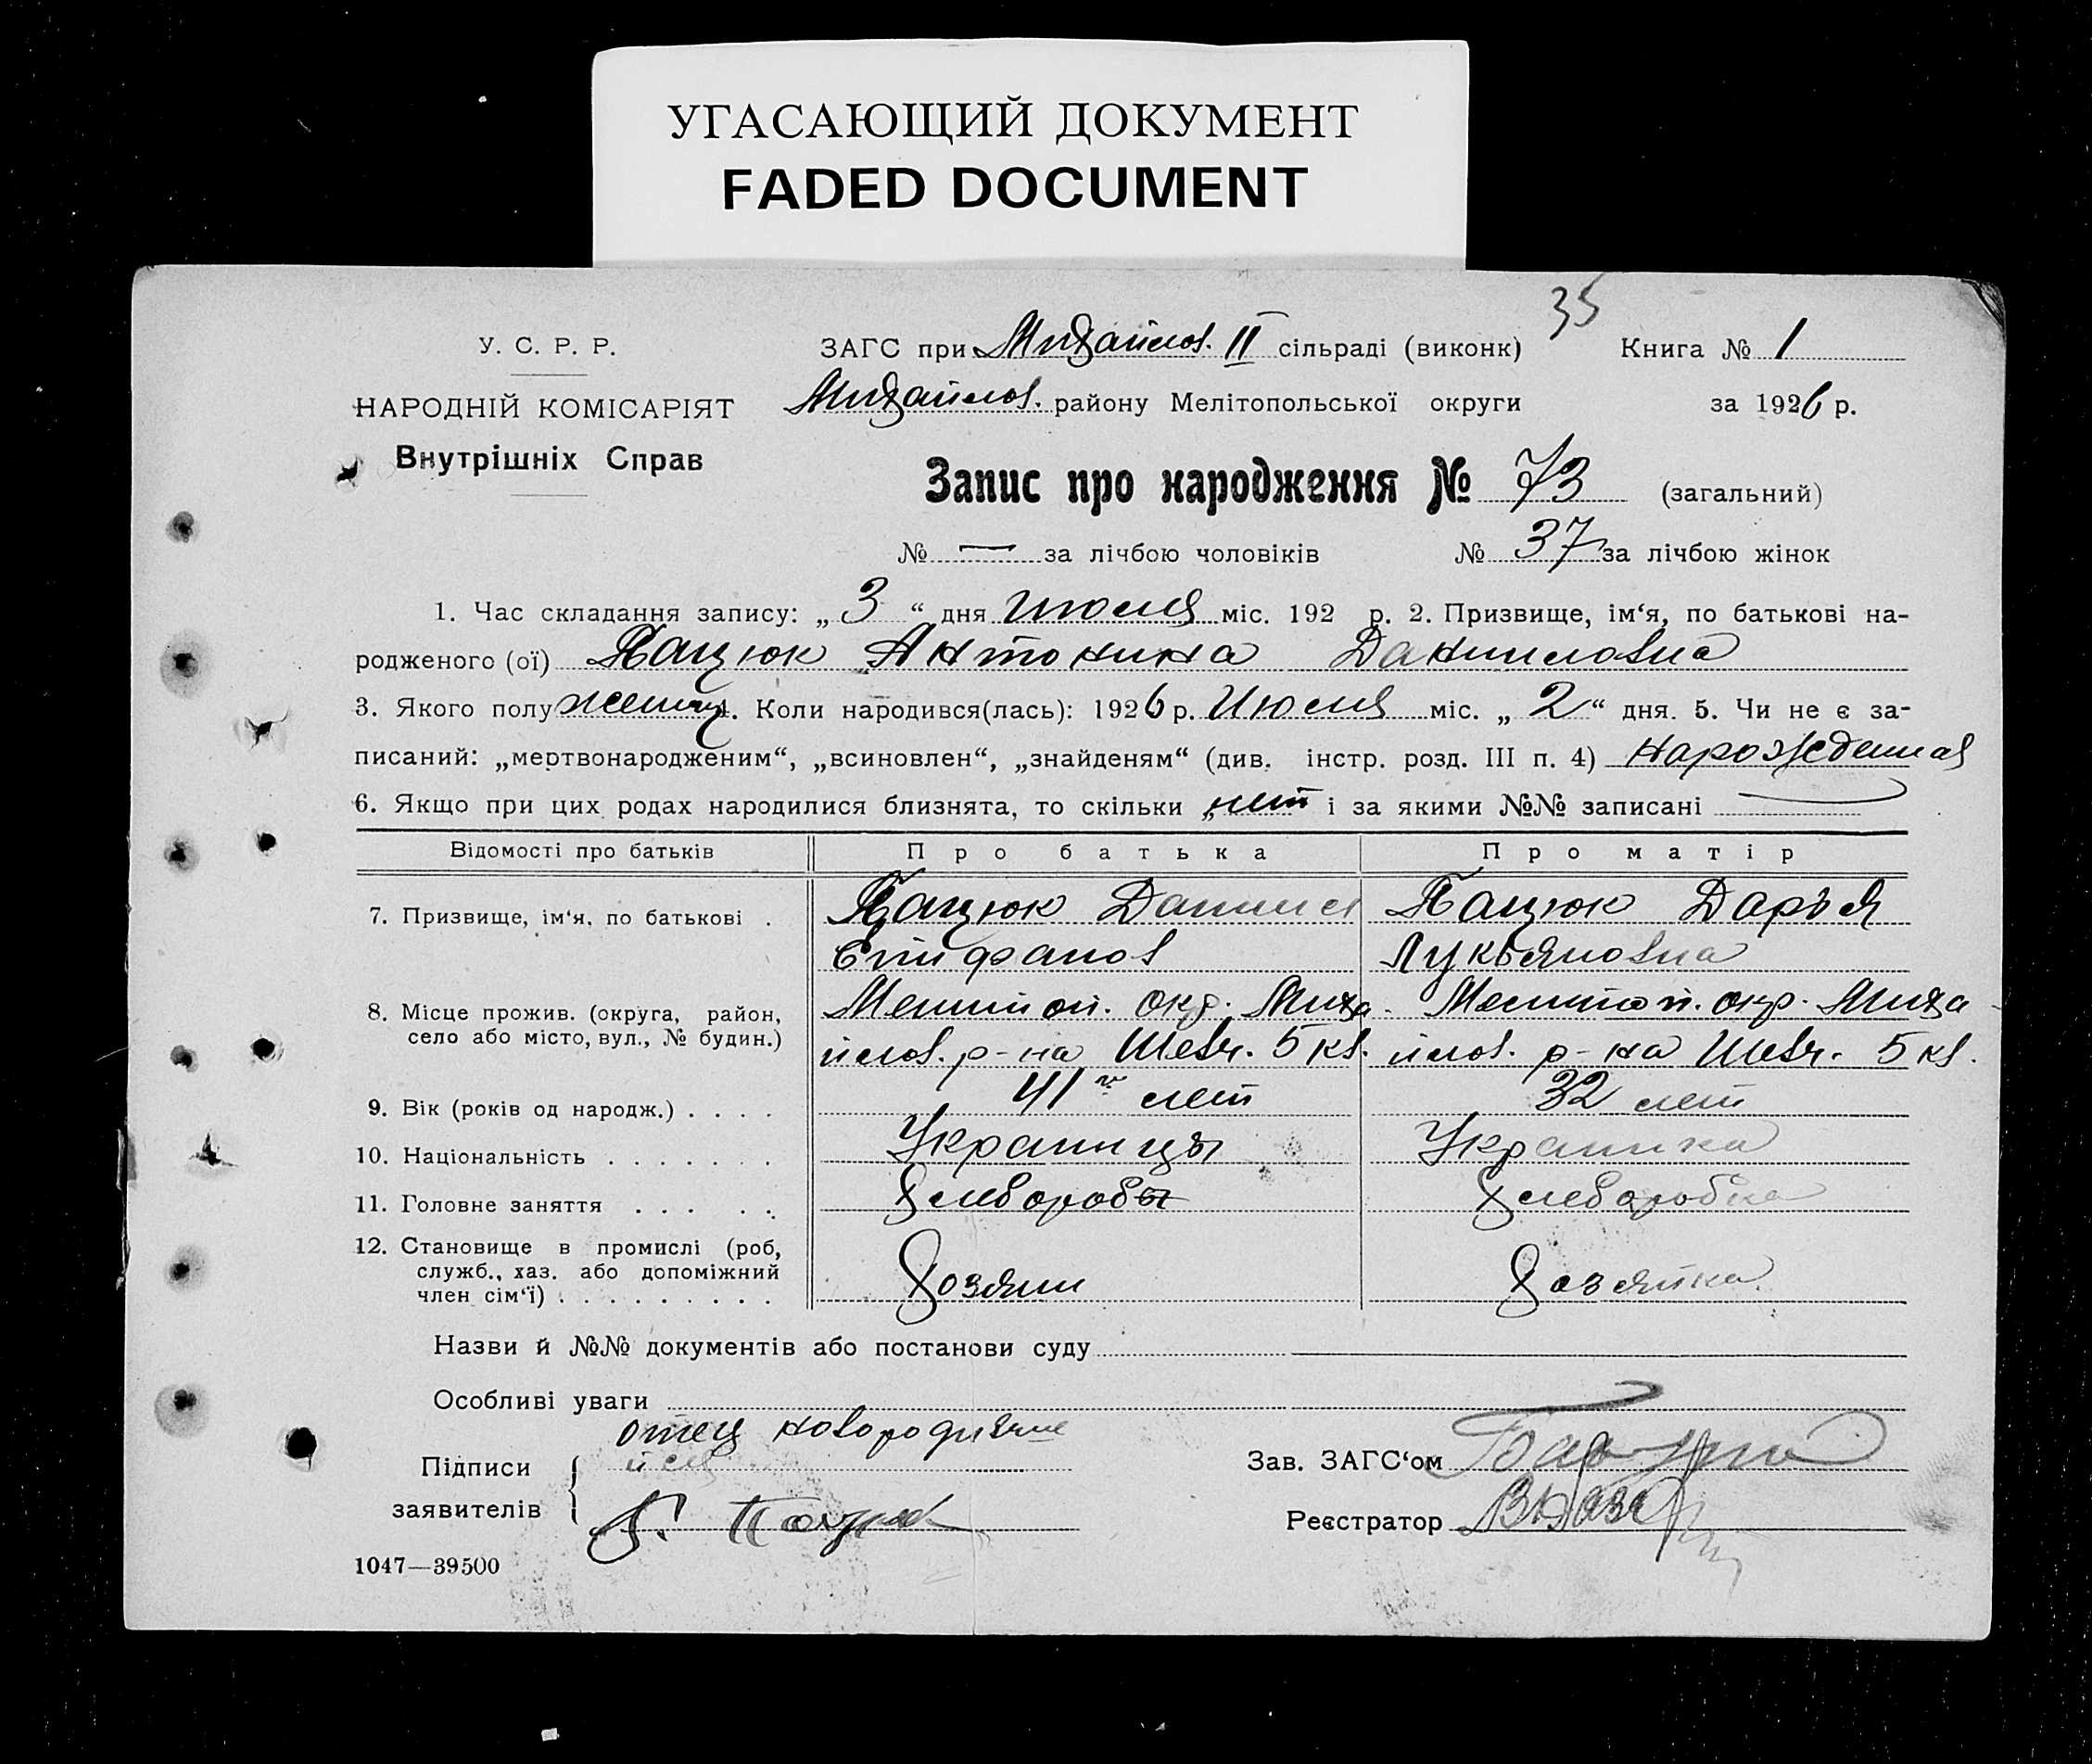 УГАСАЮЩИЙ ДОКУМЕНТ
FADED DOCUMENT
35
У. С. Р. Р.
НАРОДНІЙ КОМІСАРІЯТ
Внутрішніх Справ
ЗАГС при Михайлов. II сільраді (виконк) Книга № 1
Михайлов. району Мелітопольської округи за 1926 р.
Запис про народження № 73 (загальний)
№ — за лічбою чоловіків № 37 за лічбою жінок
1. Час складання запису: „ 3 “ дня Июля міс. 192 р. 2. Призвище, ім‘я, по батькові на-
родженого (ої) Пацюк Антонина Даниловна
3. Якого полу 4. Коли народився(лась): 1926 р. Июля міс. „ 2 “ дня. 5. Чи не є за-
писаний: „мертвонародженим“, „всиновлен“, „знайденям“ (див. інстр. розд. III п. 4) нарожденная
6. Якщо при цих родах народилися близнята, то скільки „нет і за якими №№ записані —
Відомості про батьків Про батька Про матір
7. Призвище, ім‘я, по батькові . Пацюк Даниил Пацюк Дарья
Епифанов Лукьяновна
8. Місце прожив. (округа, район, Мелитоп. окр. Миха Мелитоп. окр. Миха-
село або місто, вул., № будин.) йлов. р-на Шевч. 5 кв. йлов. р-на Шевч. 5 кв.
9. Вік (років од народж.) . . . . 41 лет 32 лет
10. Національність . . . . . . Украинцы Украинка
11. Головне заняття . . . . . Хлебороб Хлеборобка
12. Становище в промислі (роб,
служб., хаз. або допоміжний Хозяин Хозяйка
член сім‘ї) . . . . . . . . .
Назви й №№ документів або постанови суду
Особливі уваги
отец новородивше
йся
Підписи
заявителів Пацюк
Зав. ЗАГС‘ом
Реєстратор
1047—39500